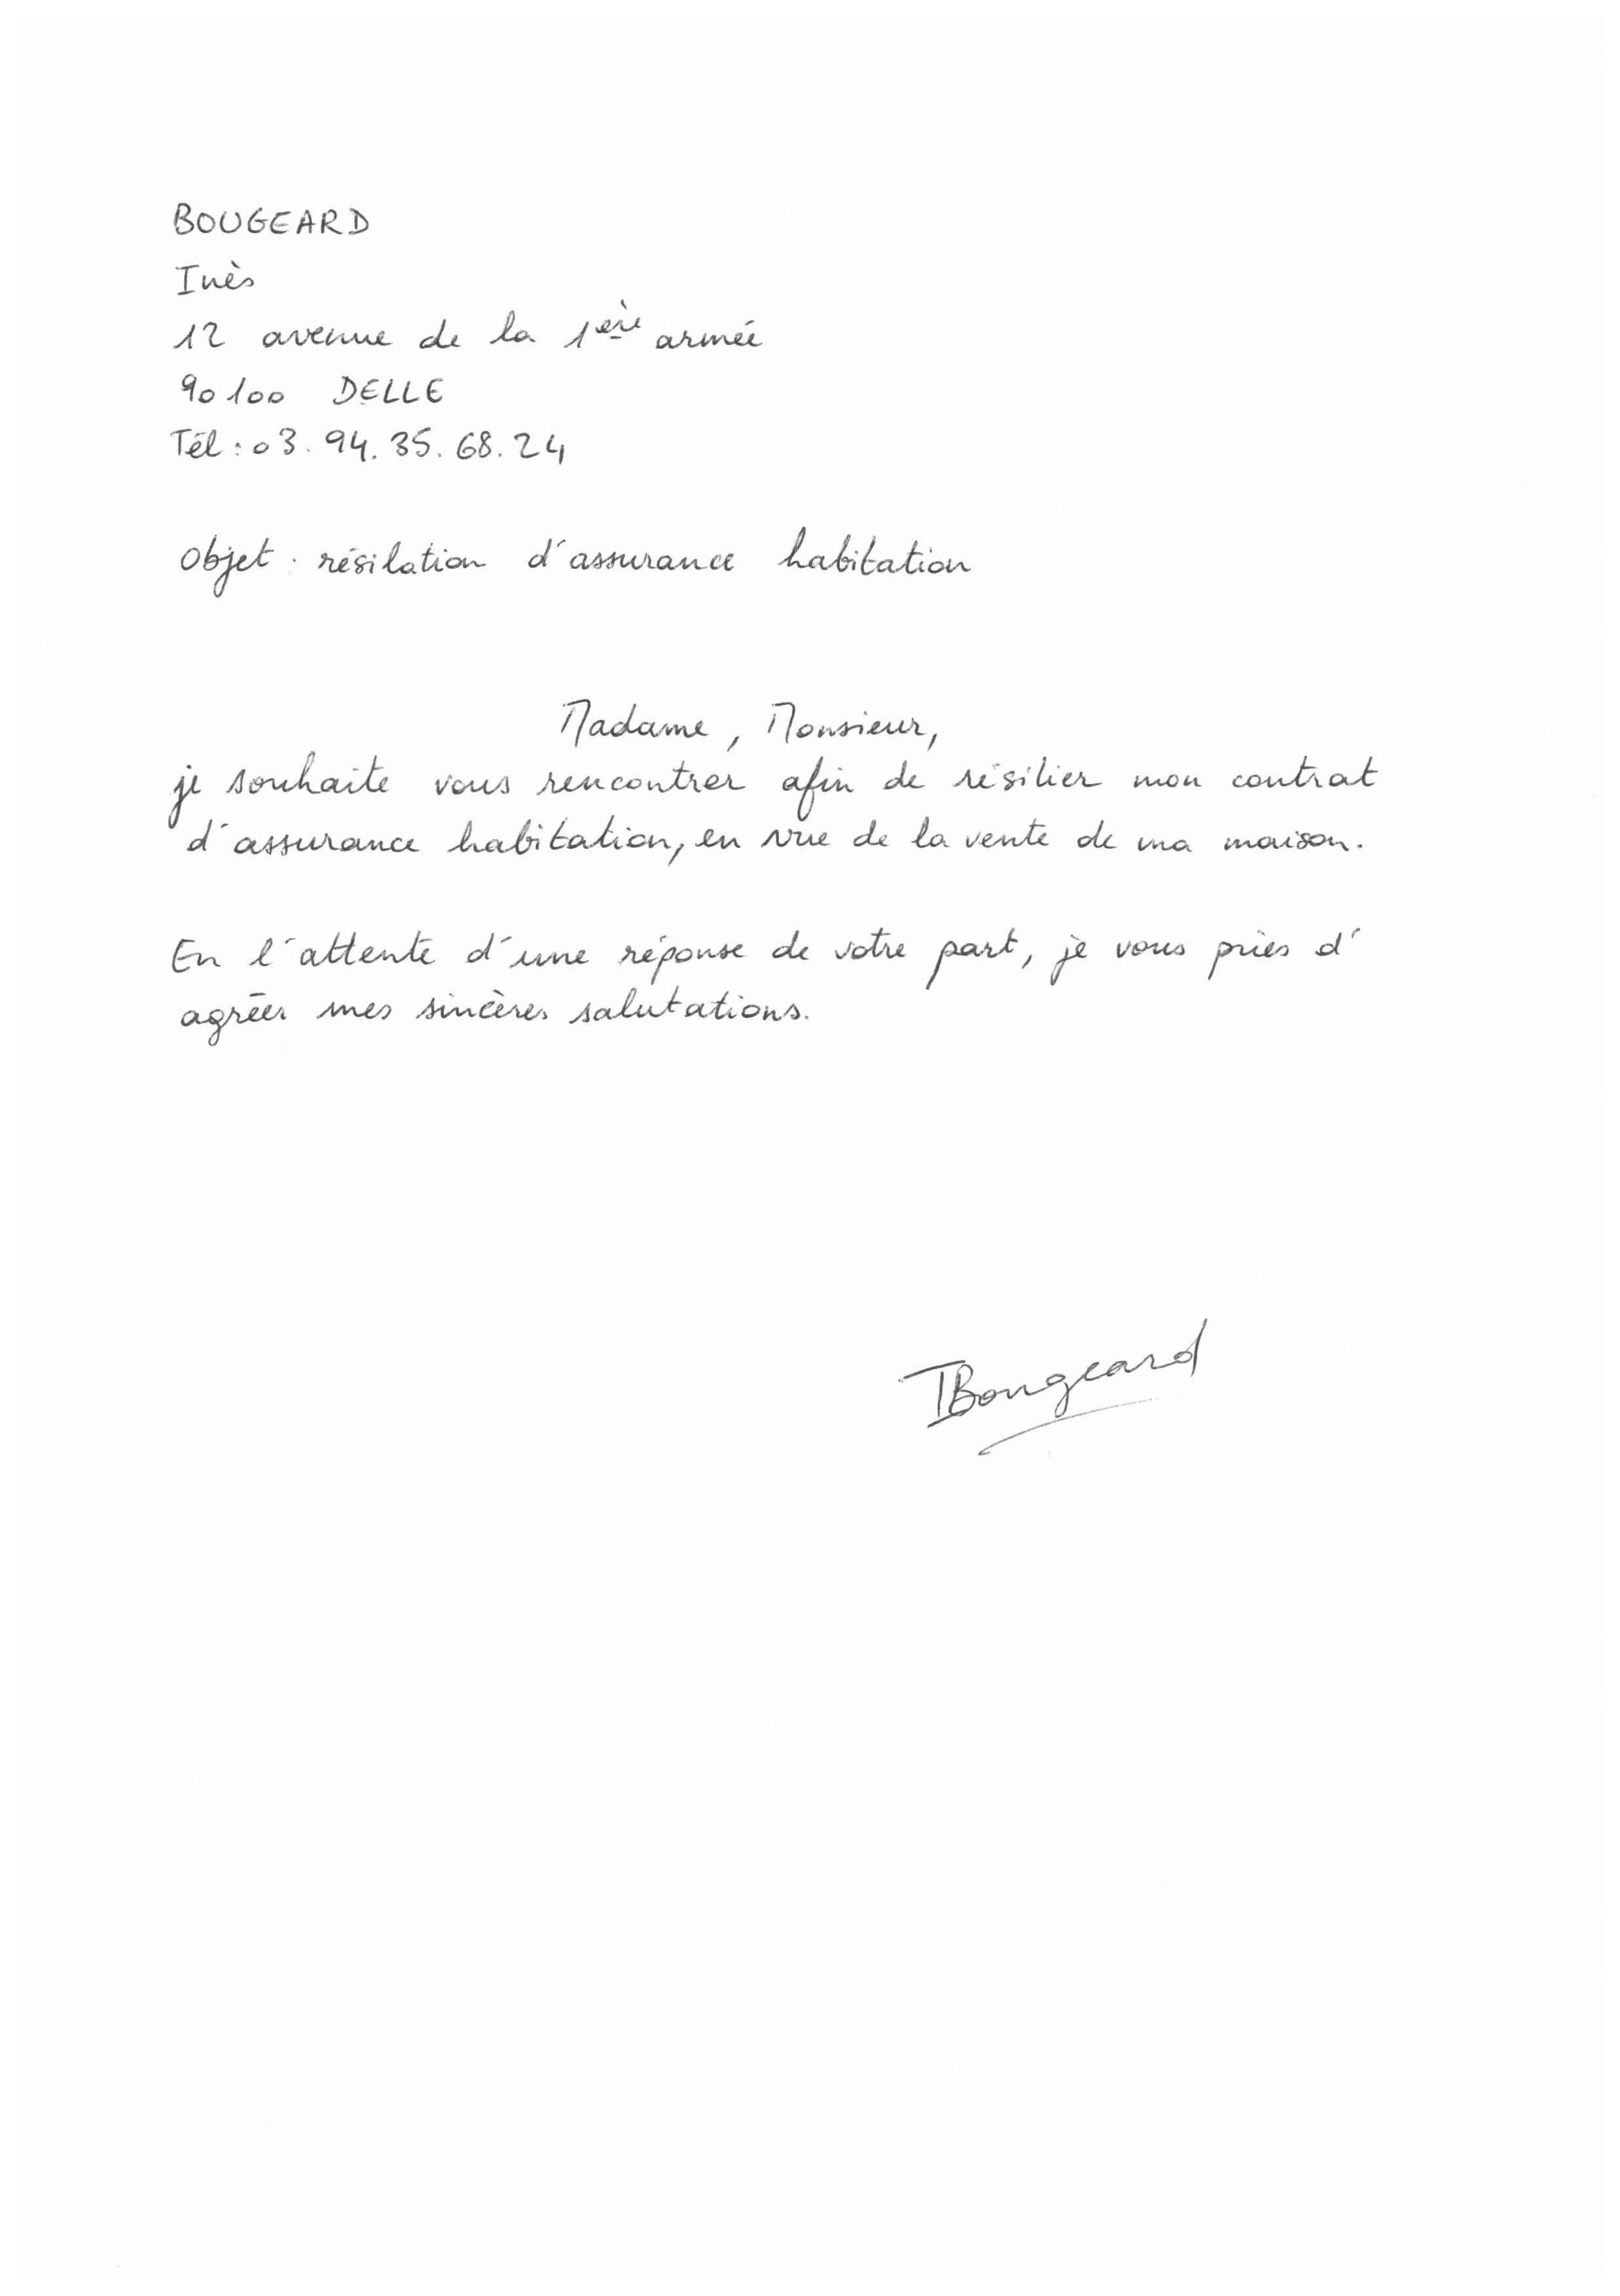 BOUGEARD
Inès
12 avenue de la 1ère armée
90100 DELLE
Tél : 03.94.35.68.24
Objet : résilation d'assurance habitation
Madame, Monsieur,
je souhaite vous rencontrer afin de résilier mon contrat
d'assurance habitation, en vue de la vente de ma maison.
En l'attente d'une réponse de votre part, je vous pries d'
agréer mes sincères salutations.
IBougeard